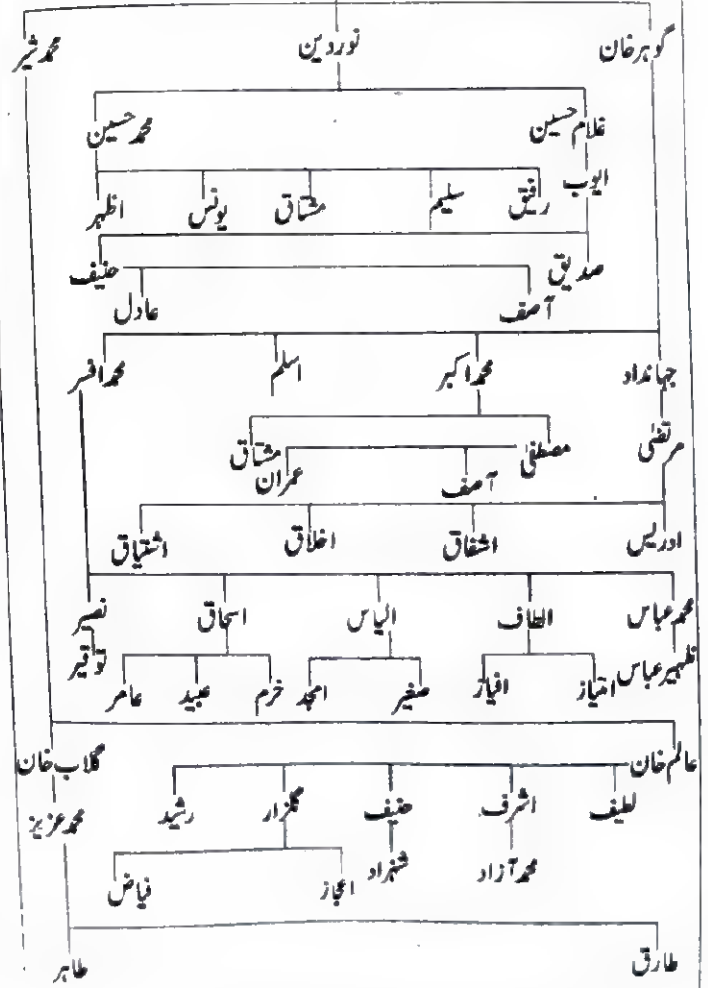 گوہرخان نوردین محمد شیر
غلام حسین محمد حسین
ایوب
رفیق سلیم مشتاق یونس اظہر
صدیق حنیف
آصف عادل
جہانداد محمد اکبر اسلم محمد افسر
مرتضیٰ
مصطفیٰ مشتاق
آصف عمران
ادریس اشفاق اخلاق اشتیاق
محمد عباس الطاف الیاس اسحاق نصیر
ظہیر عباس امتیاز افیاز صغیر امجد خرم عبید عامر توقیر
عالم خان گلاب خان
لطیف اشرف حنیف گلزار رشید محمد عزیز
محمد آزاد شہزاد اعجاز فیاض
طارق طاہر